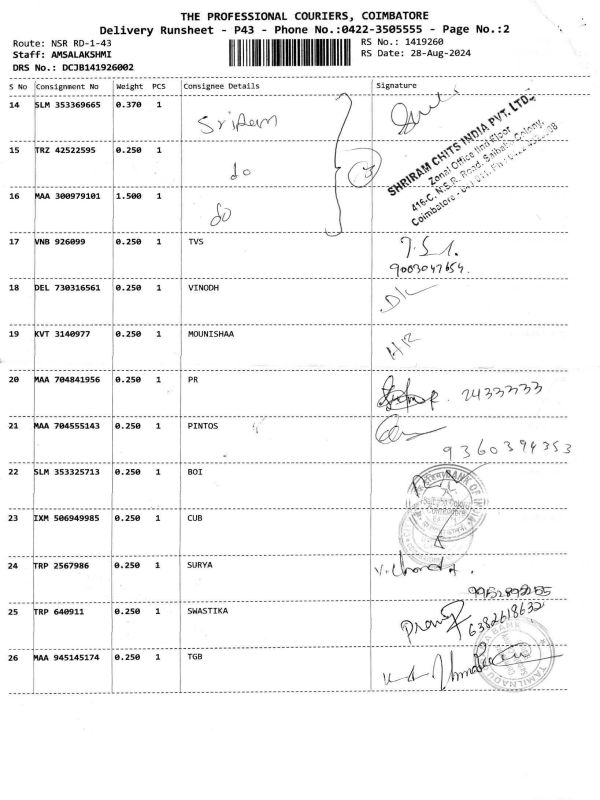 THE PROFESSIONAL COURIERS, COIMBATORE
Delivery Runsheet - P43 - Phone No.:0422-3505555 - Page No.:2
Route: NSR RD-1-43 RS No.: 1419260
Staff: AMSALAKSHMI RS Date: 28-Aug-2024
DRS No.: DCJB141926002
S No Consignment No Weight PCS Consignee Details Signature
14 SLM 353369665 0.370 1 Sriram
SHRIRAM CHITS INDIA PVT. LTD.
Zonal Office IInd Floor
416-C, N.S.R. Road, Saibaba Colony,
Coimbatore -
15 TRZ 42522595 0.250 1 do
16 MAA 300979101 1.500 1 do
17 VNB 926099 0.250 1 TVS
9003047654.
18 DEL 730316561 0.250 1 VINODH
19 KVT 3140977 0.250 1 MOUNISHAA
20 MAA 704841956 0.250 1 PR 2433333
21 MAA 704555143 0.250 1 PINTOS
9360394353
22 SLM 353325713 0.250 1 BOI
BANK OF INDIA
Coimbatore
23 IXM 506949985 0.250 1 CUB
24 TRP 2567986 0.250 1 SURYA
9952892255
25 TRP 640911 0.250 1 SWASTIKA
6382618632
26 MAA 945145174 0.250 1 TGB